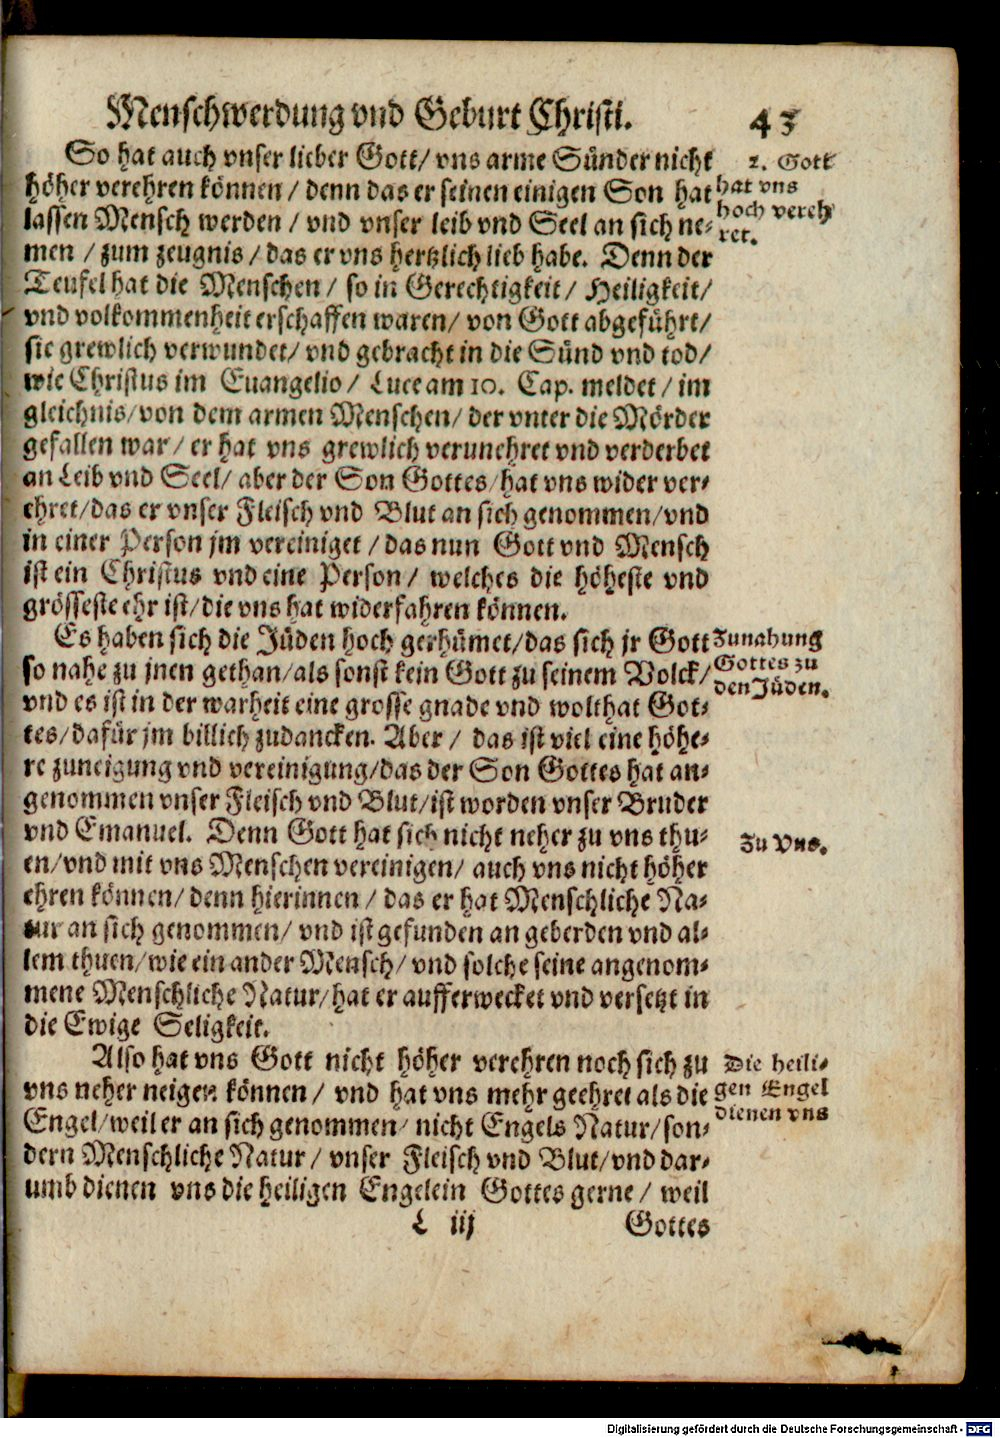 Menschwerdung vnd Geburt Christi. 43
So hat auch vnser lieber Gott/ vns arme Sünder nicht
höher verehren können / denn das er seinen einigen Son hat
lassen Mensch werden / vnd vnser leib vnd Seel an sich ne-
men / zum zeugnis / das er vns hertzlich lieb habe. Denn der
Teufel hat die Menschen / so in Gerechtigkeit / Heiligkeit/
vnd volkommenheit erschaffen waren/ von Gott abgeführt/
sie grewlich verwundet/ vnd gebracht in die Sünd vnd tod/
wie Christus im Euangelio / Luce am 10. Cap. meldet / im
gleichnis/ von dem armen Menschen/ der vnter die Mörder
gefallen war / er hat vns grewlich verunehret vnd verderbet
an Leib vnd Seel/ aber der Son Gottes/ hat vns wider ver-
ehret/das er vnser Fleisch vnd Blut an sich genommen/vnd
in einer Person jm vereiniget / das nun Gott vnd Mensch
ist ein Christus vnd eine Person/ welches die höheste vnd
grösseste ehr ist/die vns hat widerfahren können.
2. Gott
hat vns
hoch vereh
ret.
Es haben sich die Jüden hoch gerhümet/das sich jr Gott
so nahe zu jnen gethan/als sonst kein Gott zu seinem Volck/
vnd es ist in der warheit eine grosse gnade vnd wolthat Got-
tes/dafür jm billich zudancken. Aber / das ist viel eine höhe-
re zuneigung vnd vereinigung/das der Son Gottes hat an-
genommen vnser Fleisch vnd Blut/ist worden vnser Bruder
vnd Emanuel. Denn Gott hat sich nicht neher zu vns thu-
en/vnd mit vns Menschen vereinigen/ auch vns nicht höher
ehren können/ denn hierinnen / das er hat Menschliche Na-
tur an sich genommen/ vnd ist gefunden an geberden vnd al-
lem thuen/wie ein ander Mensch/ vnd solche seine angenom-
mene Menschliche Natur/hat er aufferwecket vnd versetzt in
die Ewige Seligkeit.
Zunahung
Gottes zu
den Jüden.
Zu Vns.
Also hat vns Gott nicht höher verehren noch sich zu
vns neher neigen können / vnd hat vns mehr geehret als die
Engel/weil er an sich genommen/ nicht Engels Natur/son-
dern Menschliche Natur / vnser Fleisch vnd Blut/vnd dar-
umb dienen vns die heiligen Engelein Gottes gerne / weil
Die heili-
gen Engel
dienen vns
L iij Gottes
Digitalisierung gefördert durch die Deutsche Forschungsgemeinschaft - DFG